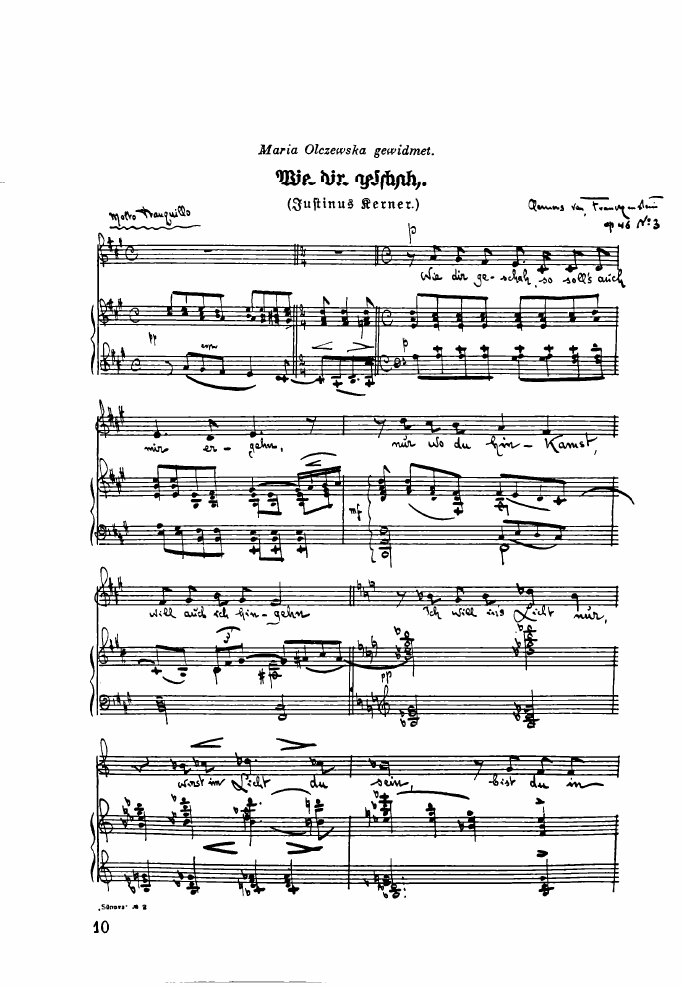 Maria Olczewska gewidmet.
Wie dir geschah.
(Justinus Kerner.)
Molto tranquillo
Clemens von Franckenstein
op 46 No 3
p
Wie dir ge- schah, so soll's auch
pp
p
mir er- gehn,
nur wo du hin- kamst,
mf
will auch ich hin- gehn
Ich will ins Licht nur,
3
pp
wirst im Licht du sein,
bist du in
"Sünova" № 2
10